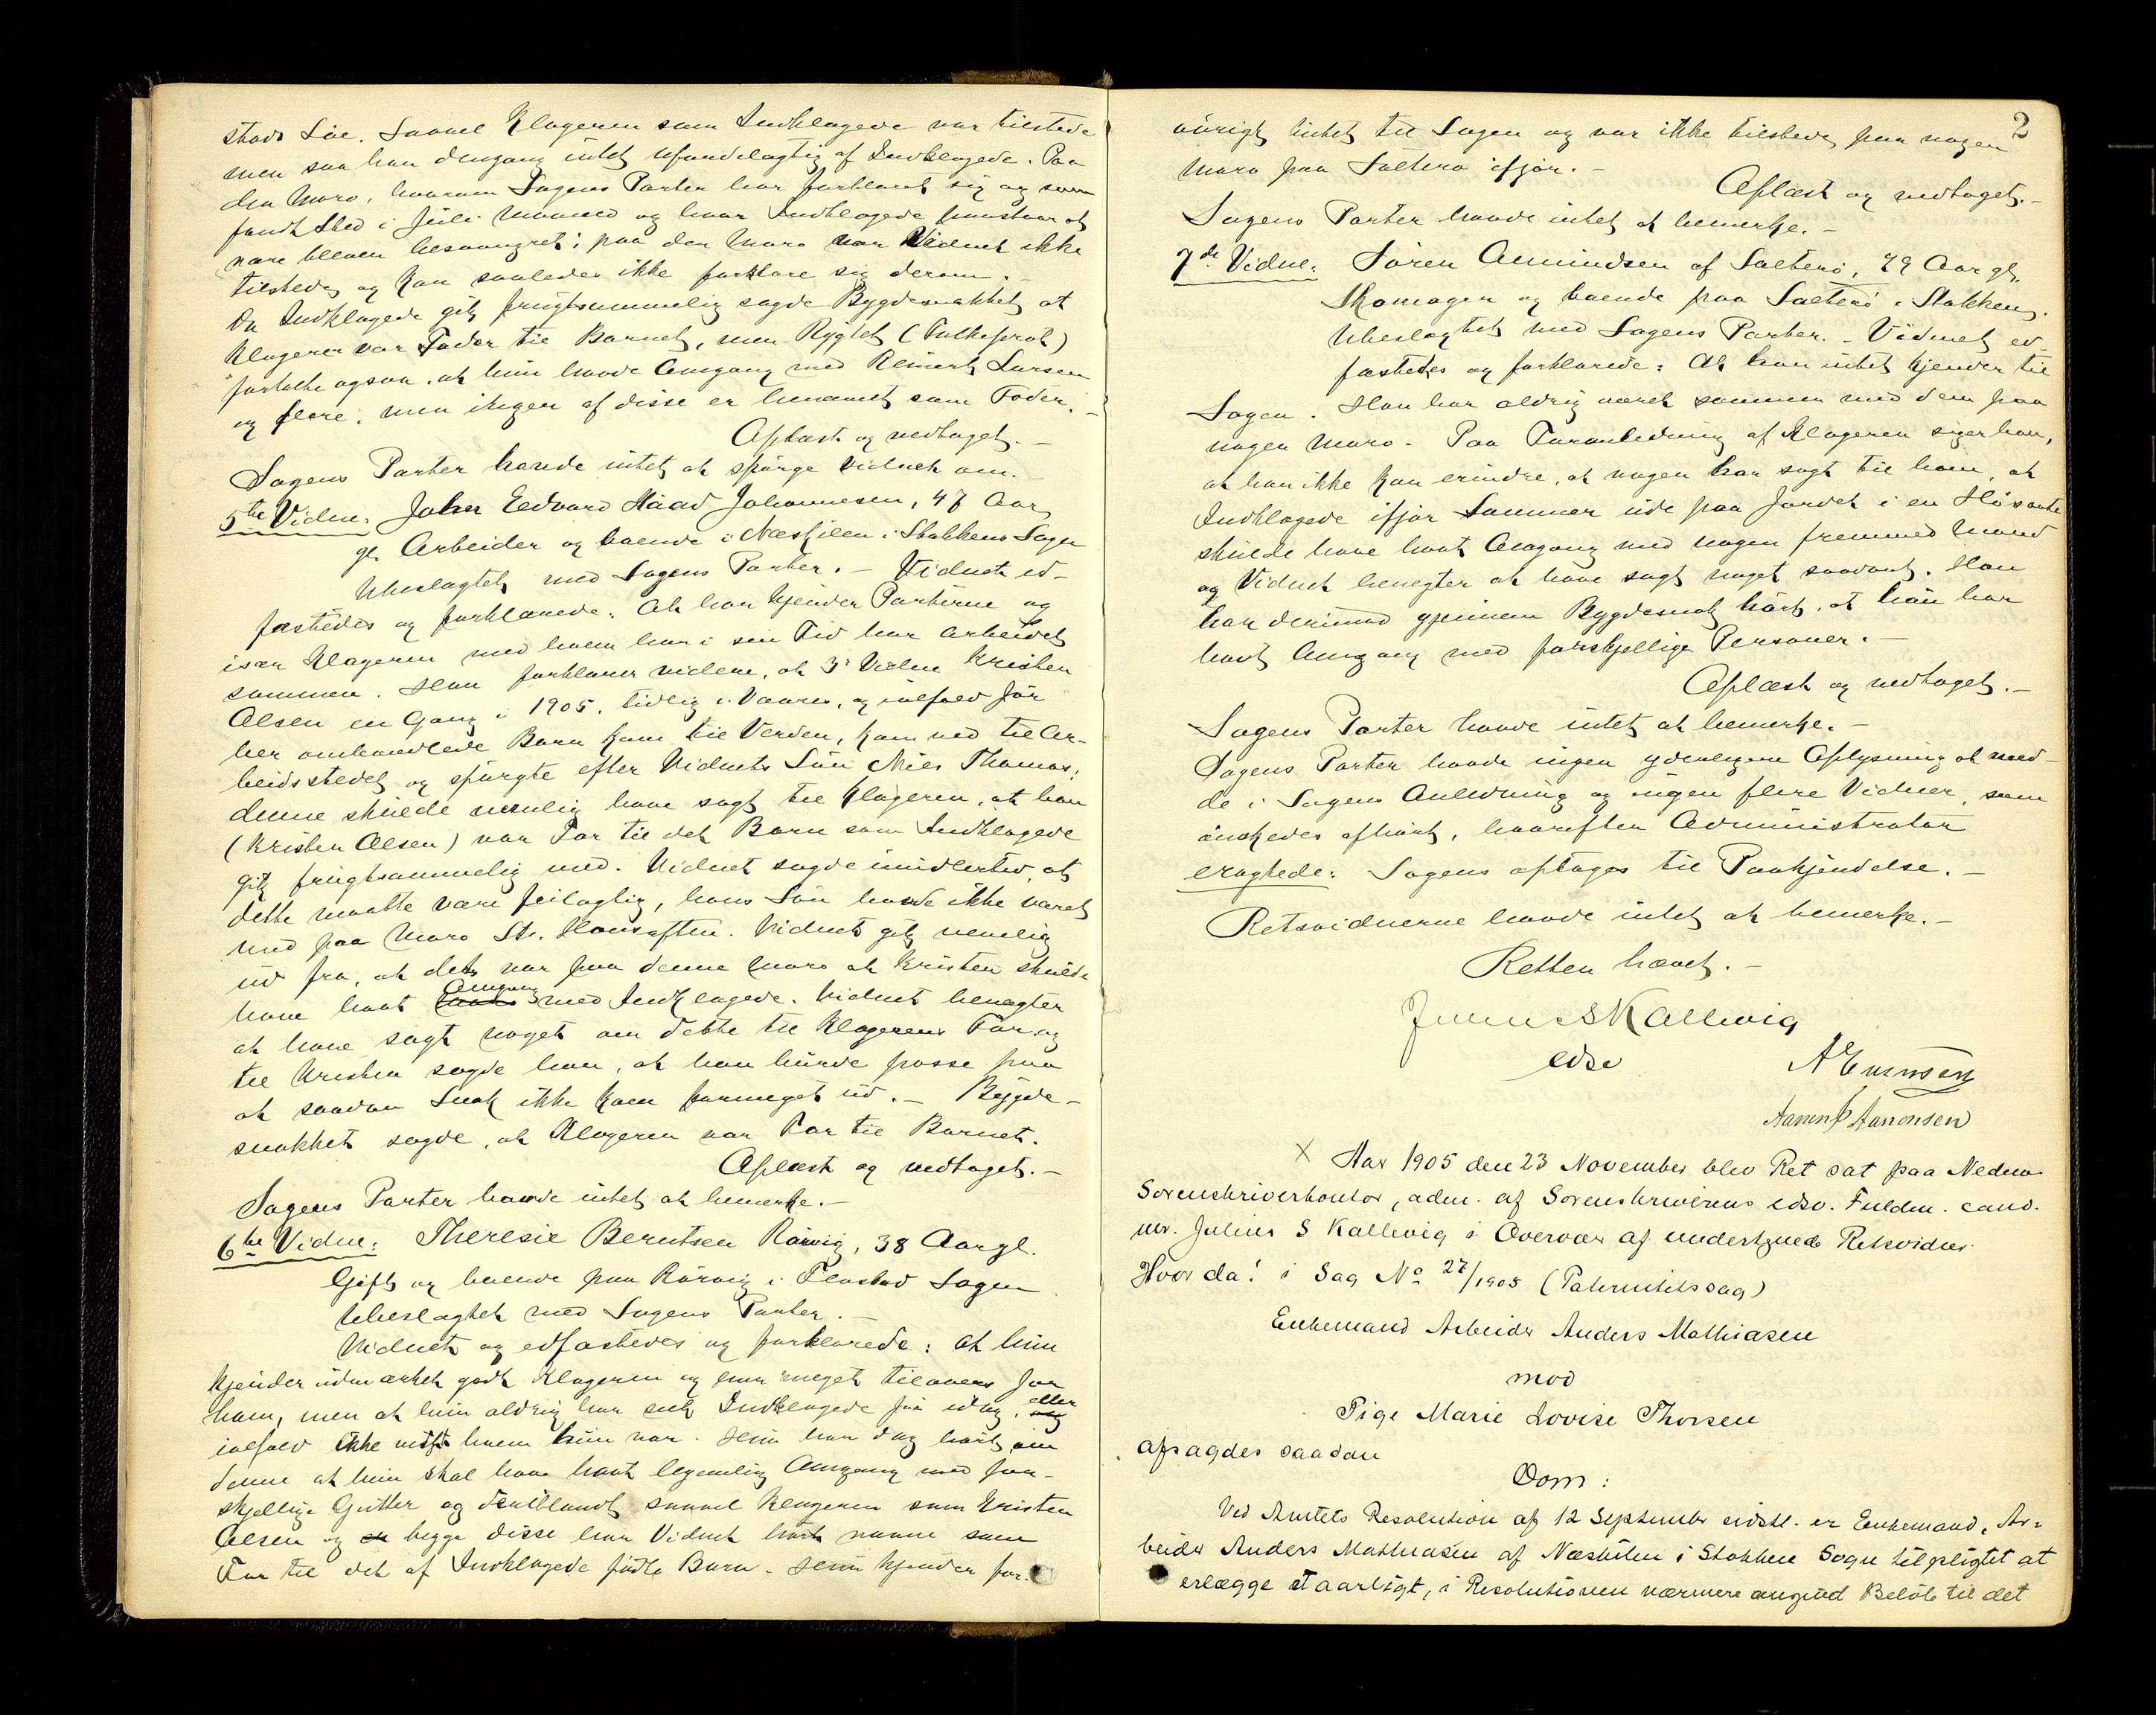 stads Löe. Saavel Klageren som Indklagede var tilstede
men saa han dengang intet ufordelagtig af Indklagede. Paa
den Moro, hvorom Sagens Parter har forklaret sig og som
fandt Sted i Juli Maaned og hvor Indklagede paastaar at
være bleven besvangret; paa den Moro var Vidnet ikke
tilstede og kan saaledes ikke forklare sig derom. -
Da Indklagede gik frugtsommelig sagde Bygdesnakket, at
Klageren var Fader til Barnet, men Rygtet (Folkeprat)
fortalte ogsaa, at hun havde Omgang med Reinert Larsen
og flere, men ingen af disse er benævnt som Fader. -
Oplæst og vedtaget. -
Sagens Parter havde intet at spørge Vidnet om. -
5te Vidne. John Edvard Haad Johannesen, 47 Aar
gl. Arbeider og boende i Næskilen i Stokkens Sogn
Ubeslægtet med Sagens Parter. - Vidnet ed-
fæstedes og forklarede: At han kjender Parterne og
især Klageren med hvem han i sin Tid har arbeidet
sammen. Han forklarer videre, at 3' Vidne Kristen
Olsen en Gang i 1905, tidlig i Vaaren, og ialfald før
her omhandlede Barn kom til Verden, kom ned til Ar-
beidsstedet og spurgte efter Vidnets Søn Niels Thomas;
denne skulde nemlig have sagt til Klageren, at han
(Kristen Olsen) var Far til det Barn som Indklagede
gik frugtsommelig med. Vidnet sagde imidlertid, at
dette maatte være feilagtig, hans Søn havde ikke været
med paa Moro St. Hansaften. Vidnet gik nemlig
ud fra, at det var paa denne Moro at Kristen skulde
have havt Omgang med Indklagede. Vidnet benægter
at have sagt noget om dette til Klagerens Far og
til Kristen sagde han, at han burde passe paa
at saadan Snak ikke kom formeget ud. - Bygde-
snakket sagde, at Klageren var Far til Barnet.
Oplæst og vedtaget. -
Sagens Parter havde intet at bemerke. -
6te Vidne: Theresie Berntsen Rørvig, 38 Aar gl.
Gift og boende paa Rørvig i Flosta Sogn
Ubeslægtet med Sagens Parter. -
Vidnet og edfæstedes og forklarede: At hun
kjender udmærket godt Klageren og meget tilovers for
ham, men at hun aldrig har seet Indklagede før idag, eller
ialfald ikke vidst hvem hun var. Hun har dog hørt om
denne at hun skal have havt legemlig Omgang med for-
skjellige Gutter og deriblandt saavel Klageren som Kristen
Olsen og begge disse har Vidnet hørt nævne som
Far til det af Indklagede fødte Barn. Hun kjender for-
2
øvrigt intet til Sagen og var ikke tilstede paa nogen
Moro paa Salterø ifjor. -
Oplæst og vedtaget. -
Sagens Parter havde intet at bemerke. -
7de Vidne: Søren Amundsen af Salterø, 79 Aar gl.
Skomager og boende paa Salterø i Stokken,
Ubeslægtet med Sagens Parter. - Vidnet ed-
fæstedes og forklarede: At han intet kjender til
Sagen. Han har aldrig været sammen med dem paa
nogen Moro. Paa Foranledning af Klageren siger han,
at han ikke kan erindre, at nogen har sagt til ham, at
Indklagede ifjor Sommer ude paa Jordet i en Høsaate
skulde have havt Omgang med nogen fremmed Mand
og Vidnet benegter at have sagt noget saadant. Han
har derimod gjennem Bygdesnak hørt, at hun har
havt Omgang med forskjellige Personer. -
Oplæst og vedtaget. -
Sagens Parter havde intet at bemerke. -
Sagens Parter havde ingen yderligere Oplysning at med-
de i Sagens Anledning og ingen flere Vidner, som
ønskedes afhørt, hvorefter Administrator
eragtede: Sagens optages til Paakjendelse. -
Retsvidnerne havde intet at bemerke. -
Retten hævet. -
Julius S Kallevig
edsv
A Evensen
Aanon Aanonsen
X Aar 1905 den 23 November blev Ret sat paa Nedenes
Sorenskriverkontor, adm. af Sorenskriverens edsv. Fuldm. cand.
jur. Julius S Kallevig i Overvær af undertegnede Retsvidner.
Hvor da! i Sag No 27/1905 (Paternitetssag)
Enkemand Arbeider Anders Mathiasen
mod
Pige Marie Lovise Thorsen
afsagdes saadan
Dom:
Ved Amtets Resolution af 12 September sidstl. er Enkemand, Ar-
beider Anders Mathiasen af Næskilen i Stokken Sogn tilpligtet at
erlægge et aarligt, i Resolutionen nærmere angived Beløb til det